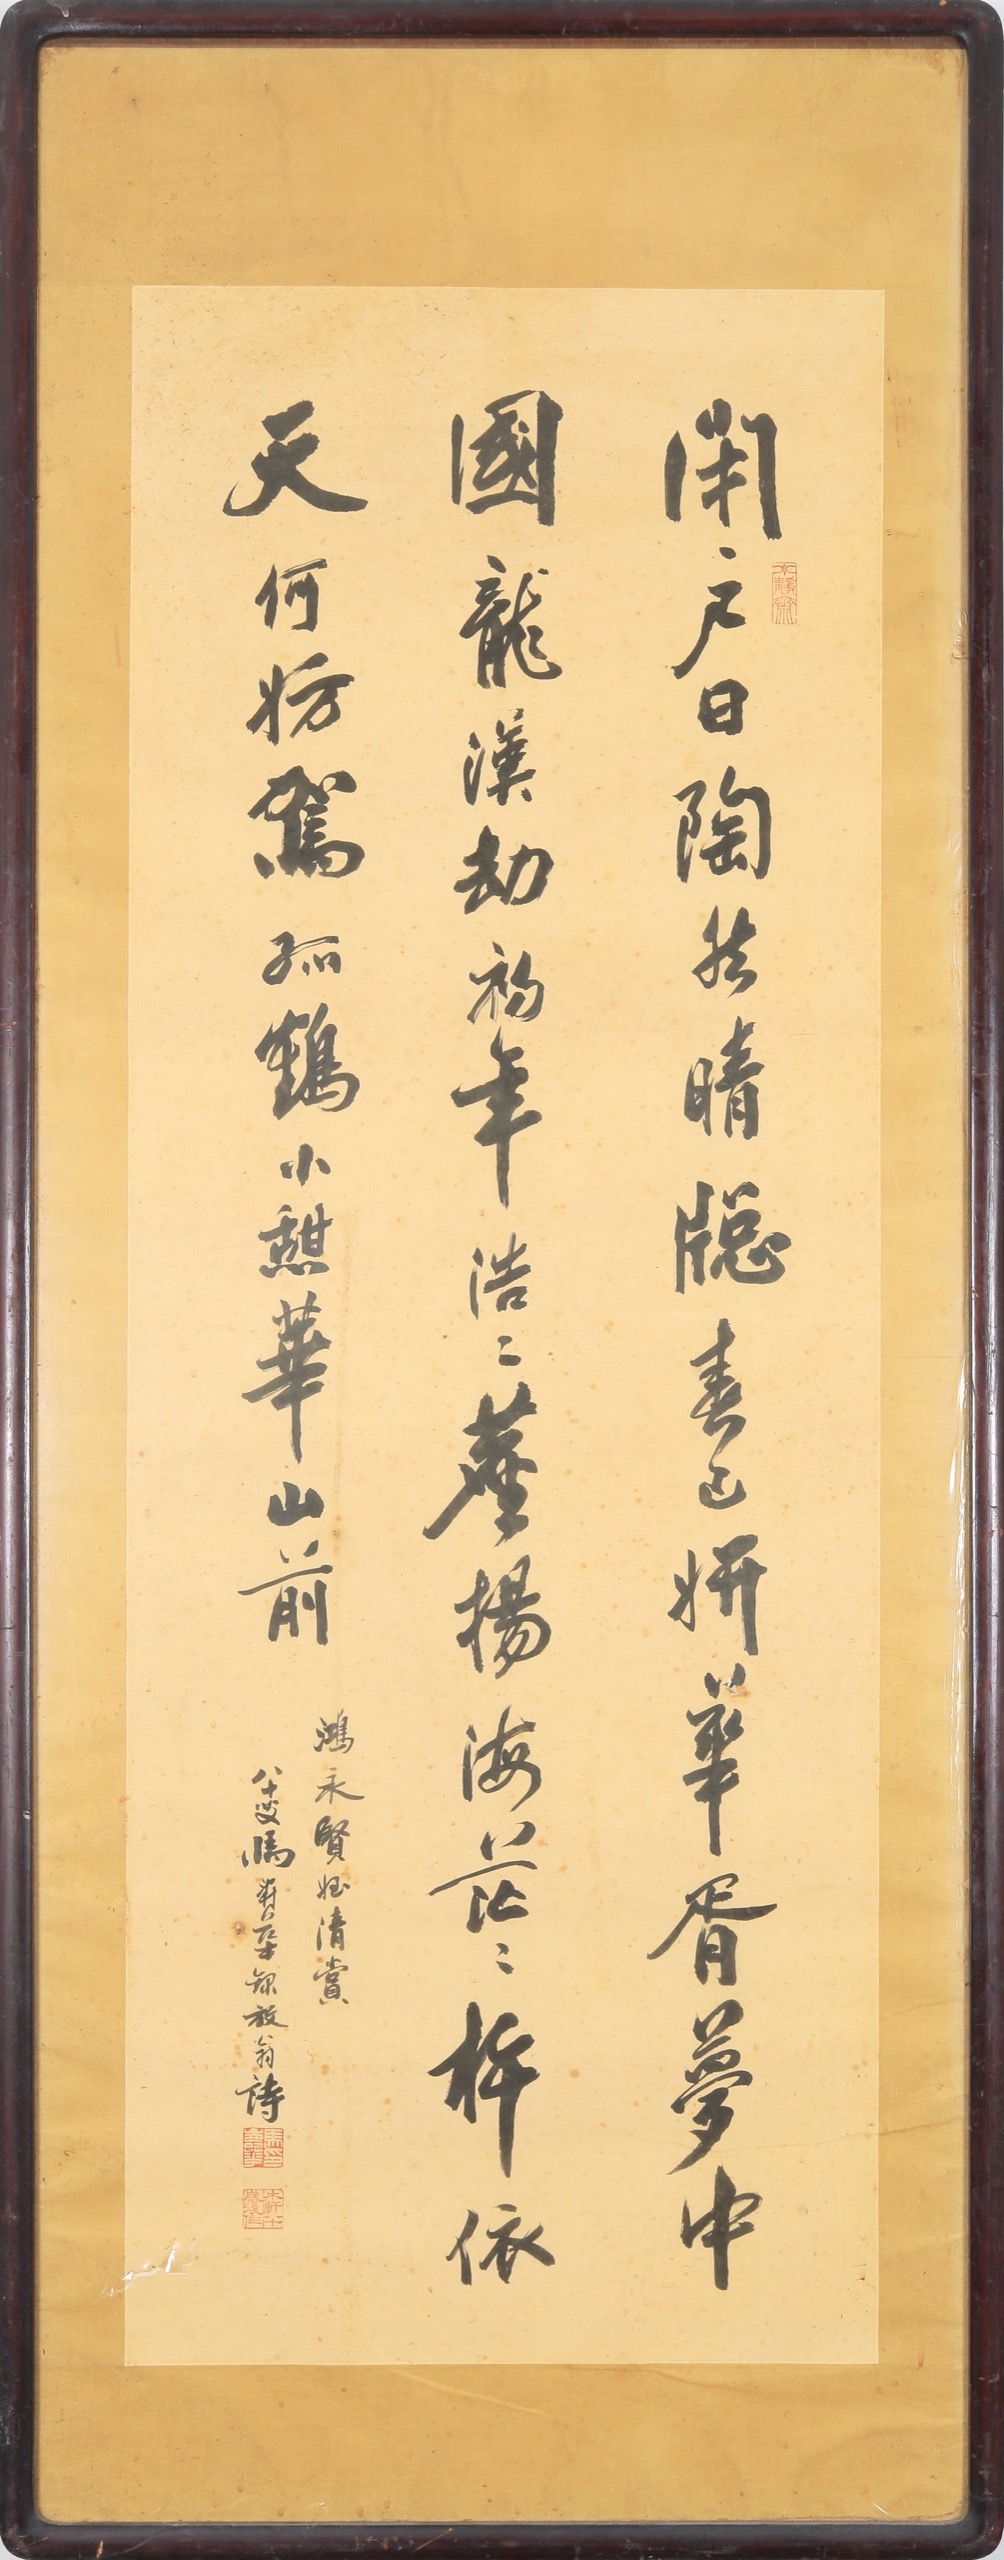 閉戶日陶然晴牕春正妍華胥夢中
國龍漢劫初年浩〻塵揚海茫〻杵依
天何妨駕孤鶴小憩華山前
鴻永賢姪清賞
八十叟馮壽華録放翁詩